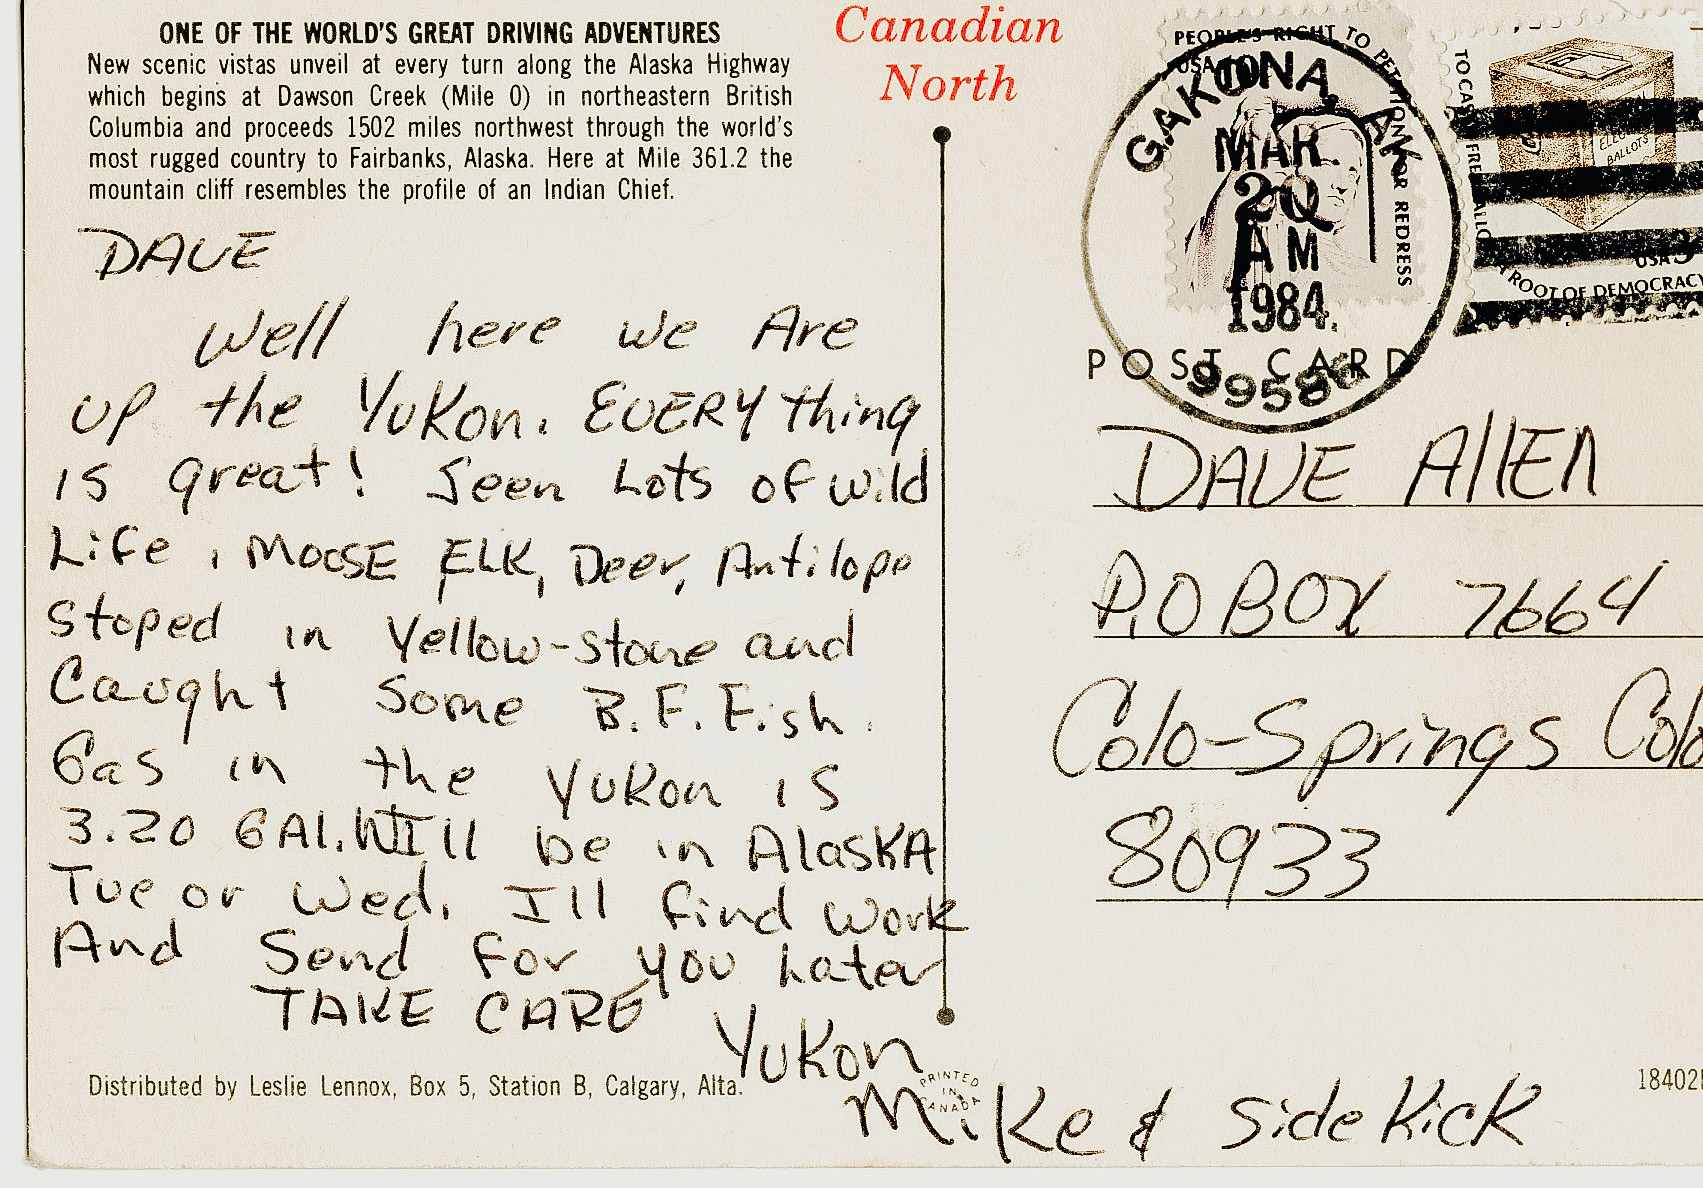 ONE OF THE WORLD'S GREAT DRIVING ADVENTURES
New scenic vistas unveil at every turn along the Alaska Highway
which begins at Dawson Creek (Mile 0) in northeastern British
Columbia and proceeds 1502 miles northwest through the world's
most rugged country to Fairbanks, Alaska. Here at Mile 361.2 the
mountain cliff resembles the profile of an Indian Chief.
DAVE
Well here we Are
up the YuKon. EVERY thing
is great! Seen Lots of wild
Life, MOOSE ELK, Deer, Antilope
Stoped in Yellow-stone and
Caught Some B.F. Fish.
Gas in the YuKon is
3.20 GAl. Will be in AlasKA
Tue or Wed. I'll find work
And Send for you Later
TAKE CARE
YuKon
Mike & SideKick
Distributed by Leslie Lennox, Box 5, Station B, Calgary, Alta.
Canadian
North
PRINTED
IN
CANADA
PEOPLE'S RIGHT TO PETITION FOR REDRESS
USA 10
GAKONA, AK
MAR
20
AM
1984
99586
ELECTION
BALLOTS
USA 3
A ROOT OF DEMOCRACY
POST CARD
DAVE AllEN
P.O BOX 7664
Colo-Springs Colo
80933
18402